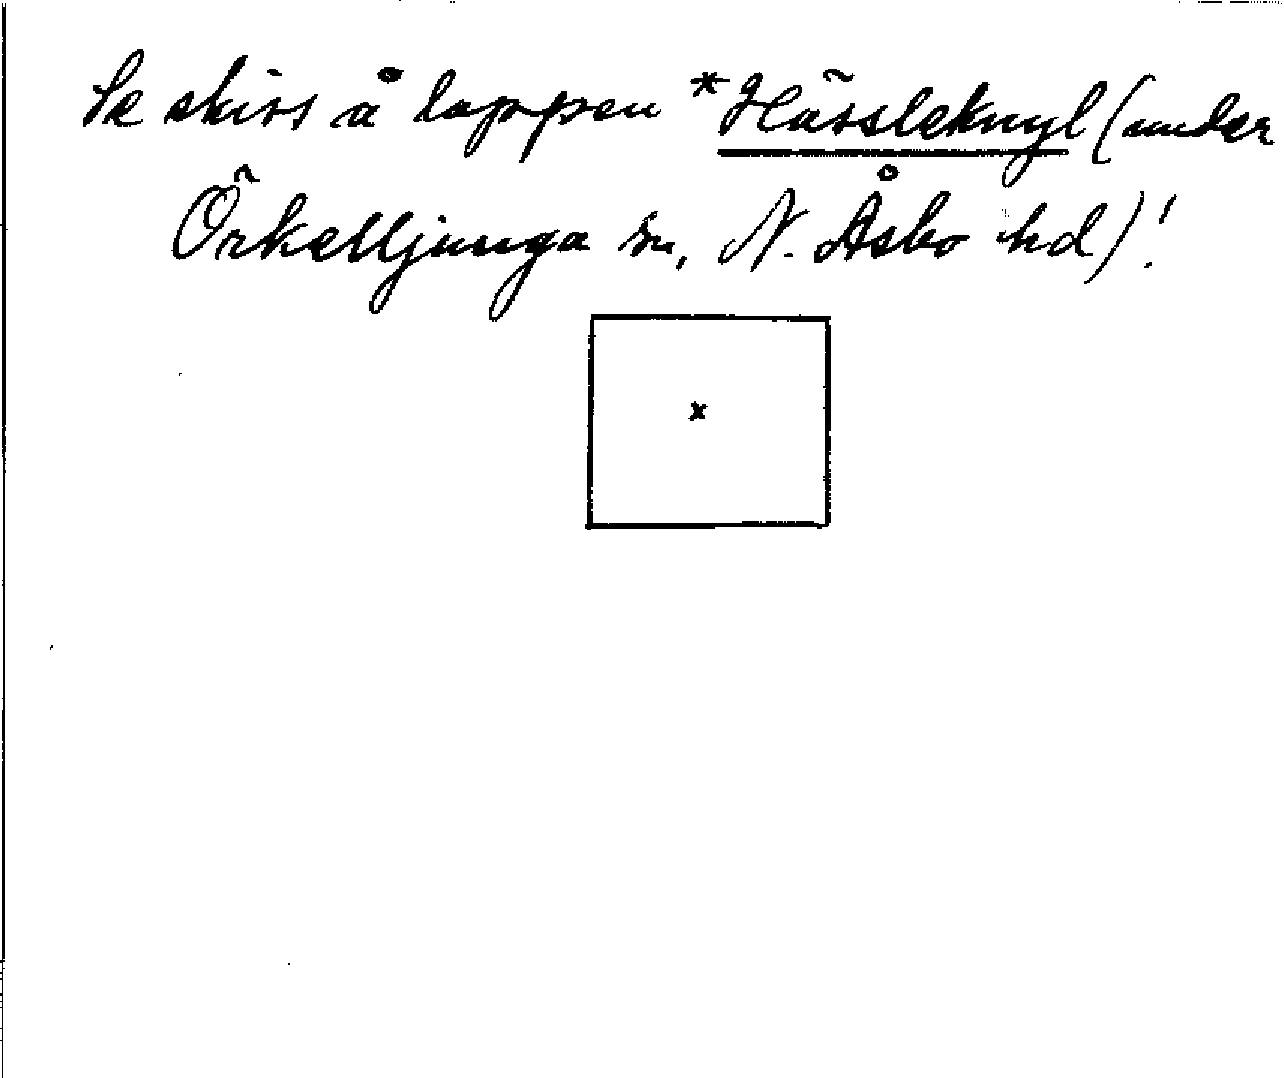 Se skiss å lappen *Hässleknyl (under
Örkelljunga sn, N. Åsbo hd)!
x